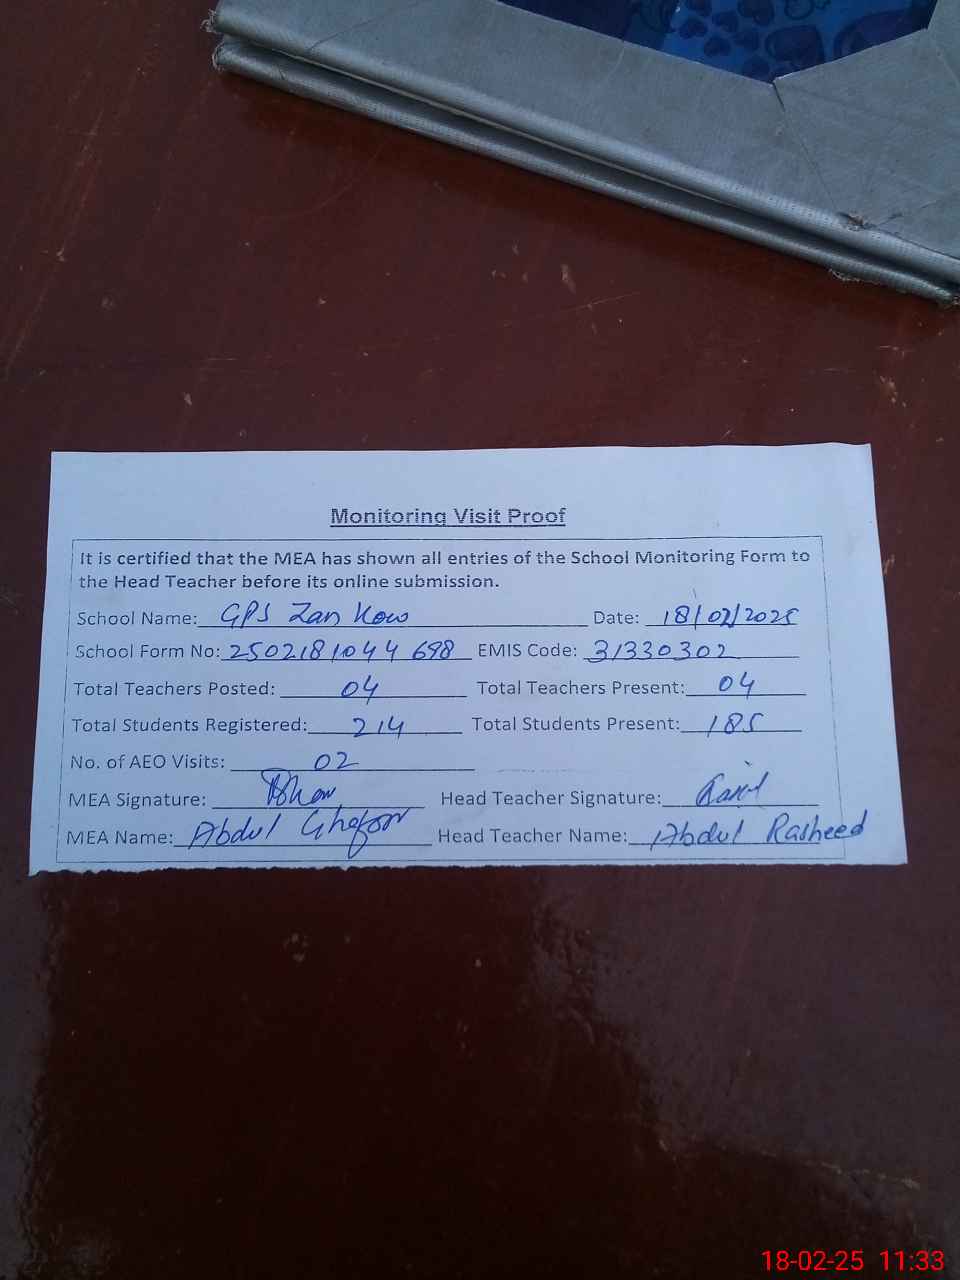 Monitoring Visit Proof
It is certified that the MEA has shown all entries of the School Monitoring Form to
the Head Teacher before its online submission.
School Name: GPS Zan Kow Date: 18/02/2025
School Form No: 2502181044698 EMIS Code: 31330302
Total Teachers Posted: 04 Total Teachers Present: 04
Total Students Registered: 214 Total Students Present: 185
No. of AEO Visits: 02
MEA Signature: Head Teacher Signature:
MEA Name: Abdul Ghafoor Head Teacher Name: Abdul Rasheed
18-02-25 11:33